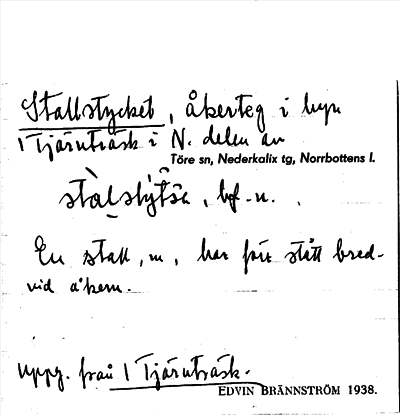 Stallstycket, åkerteg i byn
1 Tjärnträsk i N. delen av
Töre sn, Nederkalix tg, Norrbottens l.
bf. n.
En stall, m, har förr stått bred-
vid åkern.
Uppg. från 1 Tjärnträsk.
EDVIN BRÄNNSTRÖM 1938.